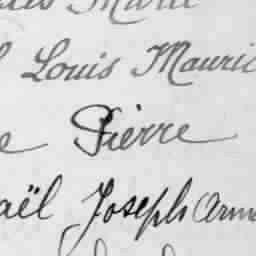 Louis Mauric
e Pierre
aël Joseph Arm